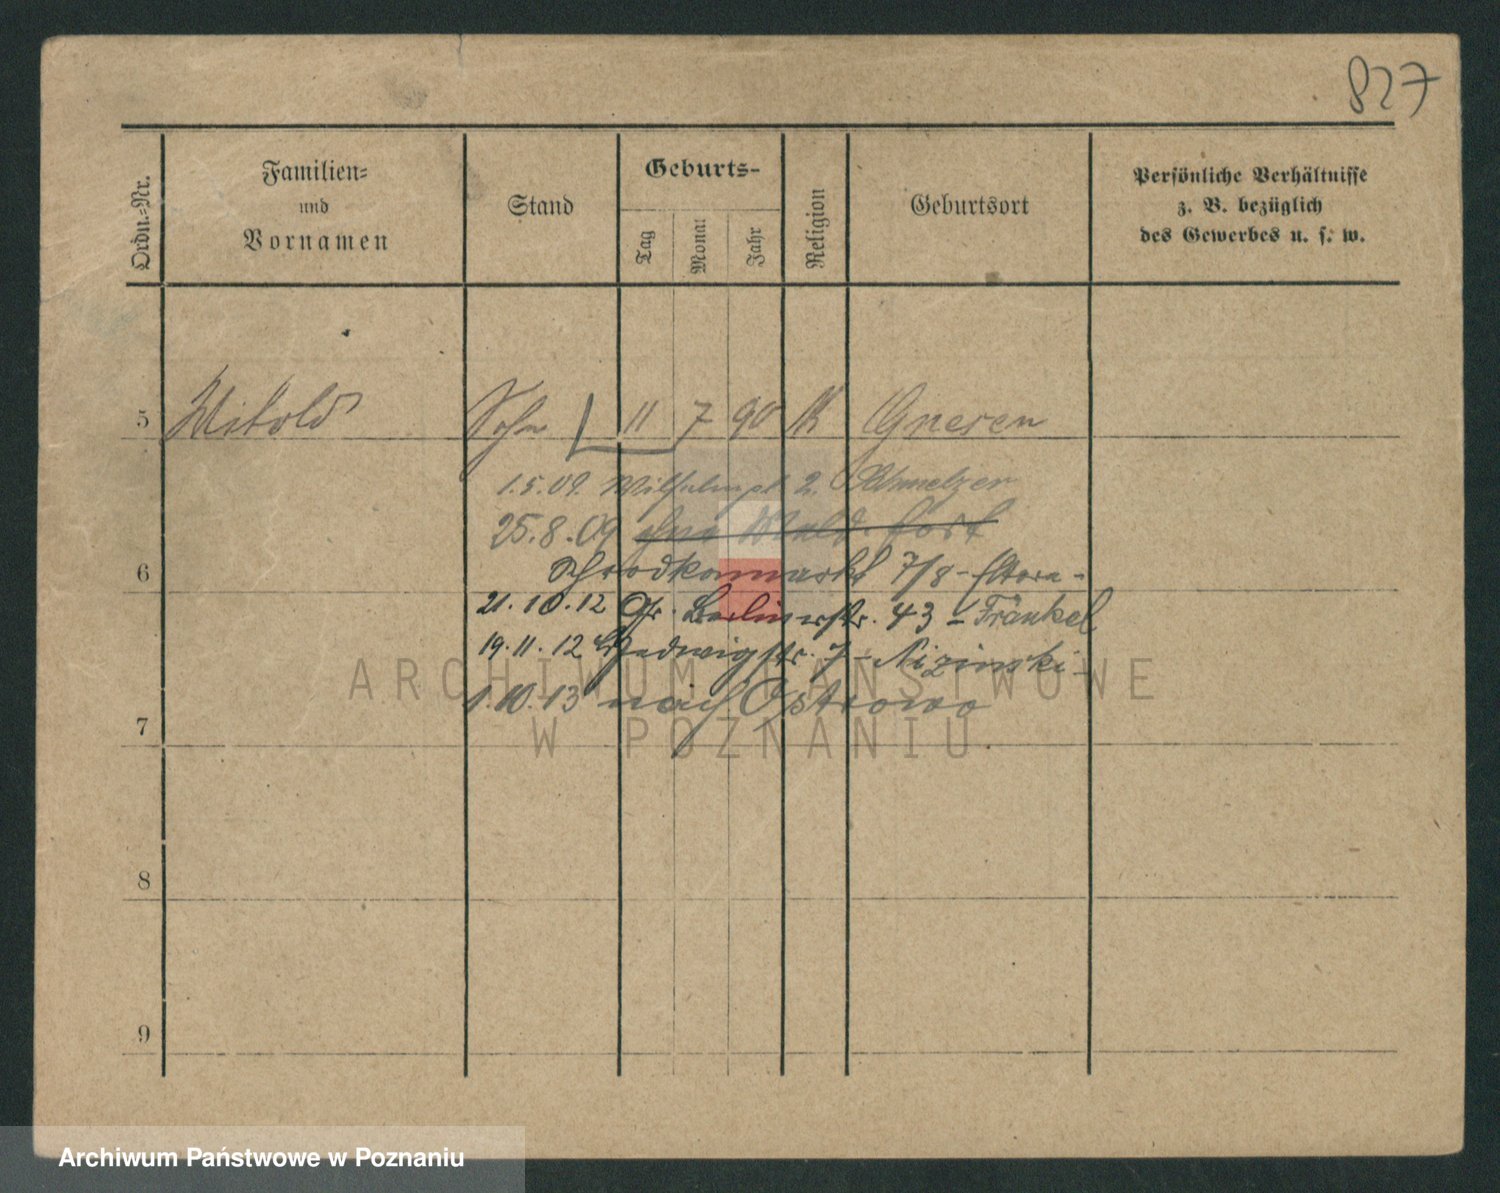 827
Ordn.-Nr.
Familien-
und
Vornamen
Stand
Geburts-
Tag
Monat
Jahr
Religion
Geburtsort
Persönliche Verhältnisse
z. B. bezüglich
des Gewerbes u. s. w.
5 Witold Sohn 11 7 90 K Gnesen
1.5.09. Wilhelmpl 2. Schmelzer
25.8.09 ohne fort
6 Schrodkamarkt 7/8 - Eltern -
21.10.12 Gr. Berlinerstr. 43 Fränkel
19.11.12 Hedwigstr. 7 - Nizinski -
1.10.13 nach Ostrowo
7
8
9
ARCHIWUM PAŃSTWOWE
W POZNANIU
Archiwum Państwowe w Poznaniu